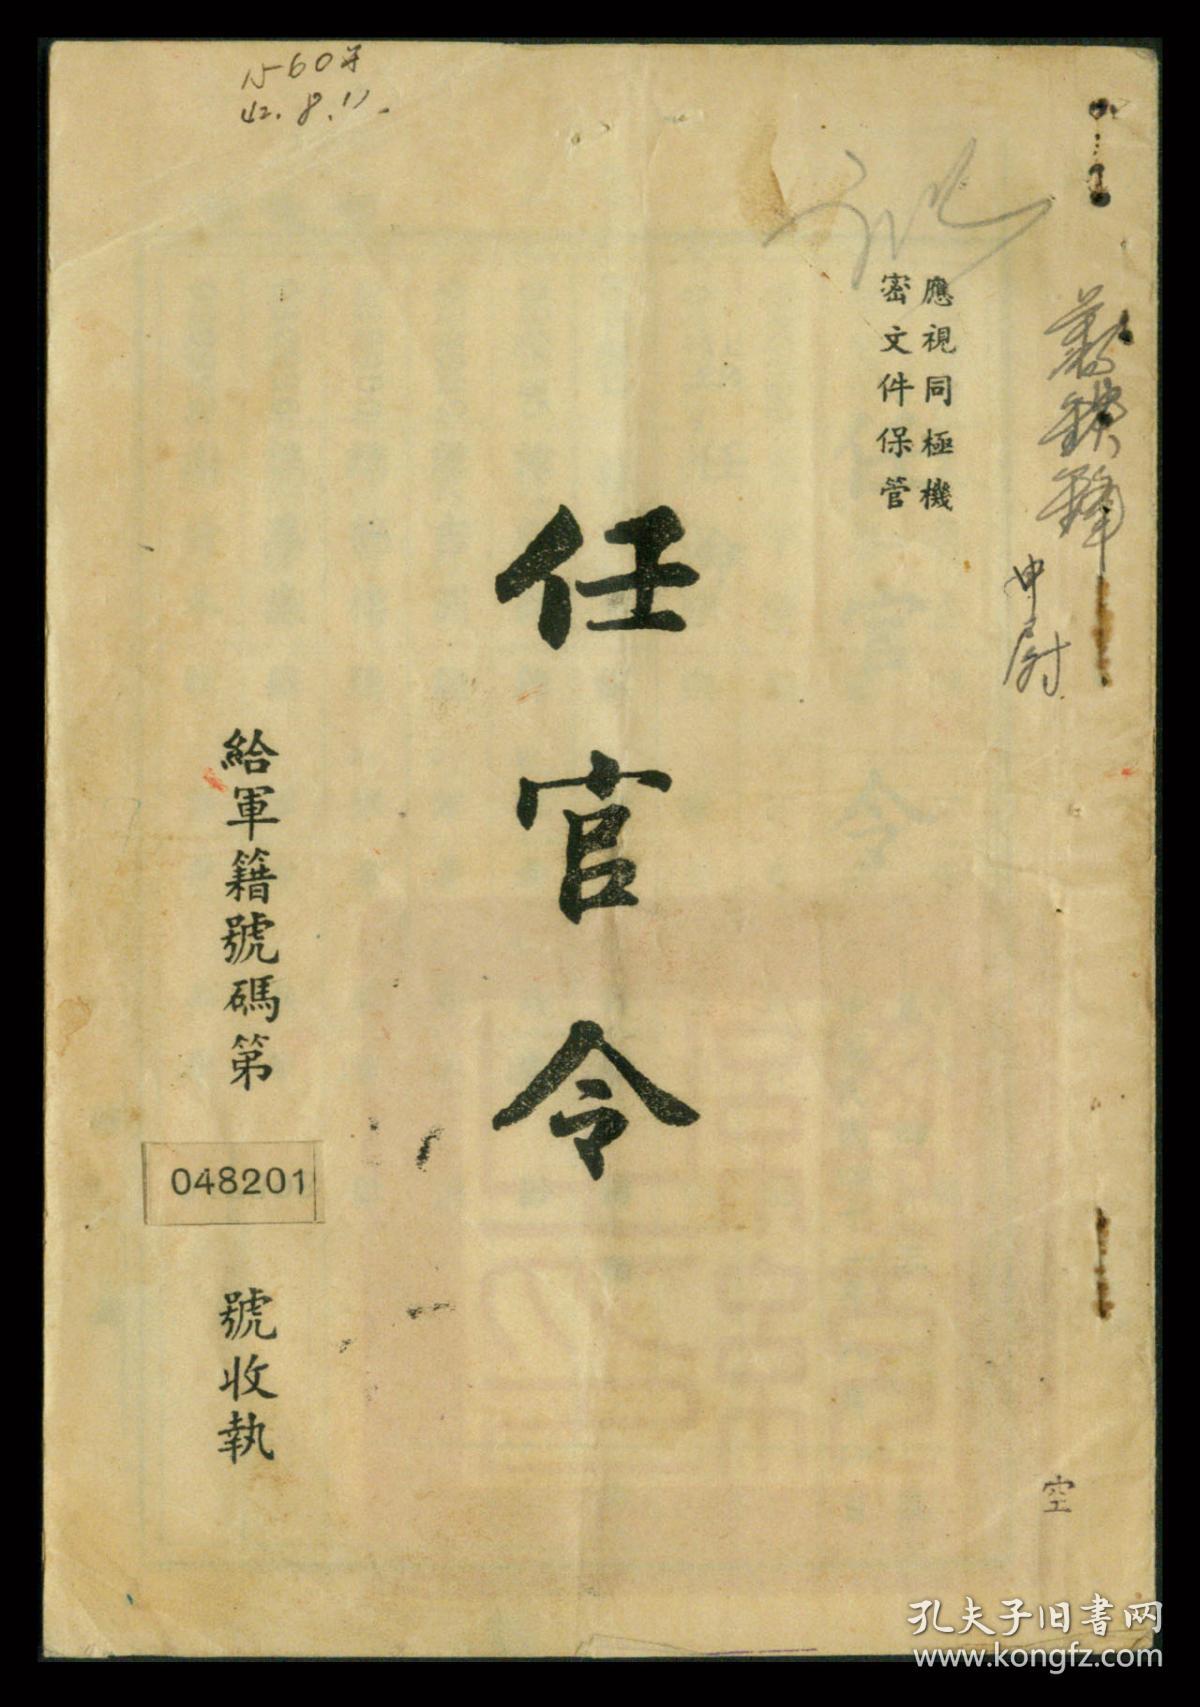 42.8.11.
應視同極機
密文件保管
蕭鐵鋒
中尉
任官令
給軍籍號碼第
048201
號收執
空
孔夫子旧书网
www.kongfz.com